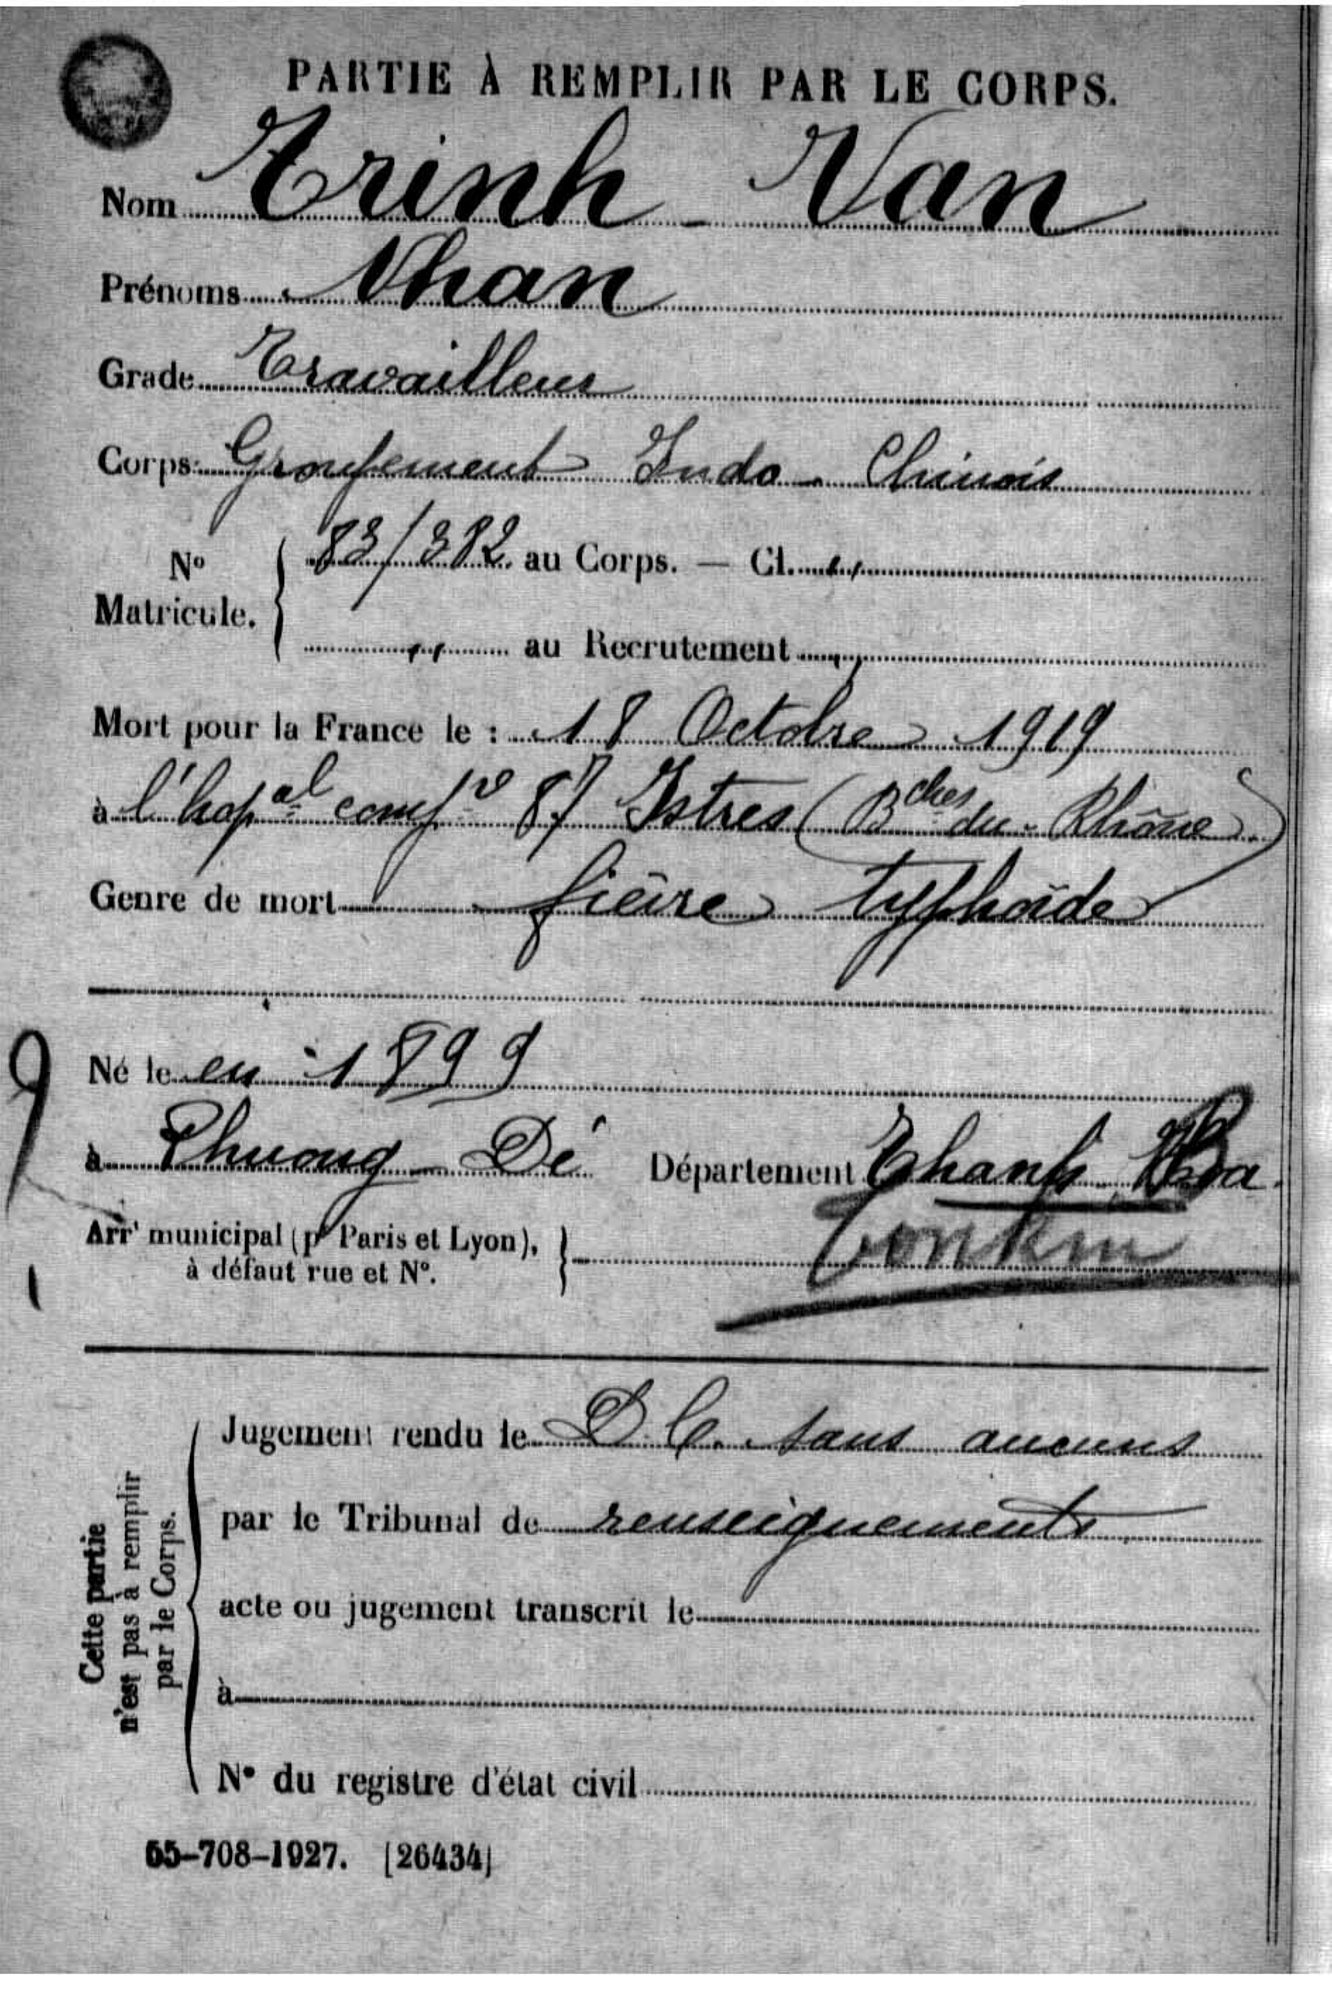 PARTIE À REMPLIR PAR LE CORPS.
Nom Trinh - Van
Prénoms Nhan
Grade Travailleur
Corps Groupement Indo-Chinois
N° Matricule. 83/382 au Corps. — Cl. "
" au Recrutement "
Mort pour la France le : 18 Octobre 1919
à l'hop al comp re 87 Istres (Bches du-Rhône)
Genre de mort fièvre typhoïde
Né le en 1899
à Phuong-Dé Département Thanh Hoa
Arrt municipal (pr Paris et Lyon), à défaut rue et N°.
Tonkin
Cette partie n'est pas à remplir par le Corps.
Jugement rendu le D.C. sans aucuns
par le Tribunal de renseignements
acte ou jugement transcrit le
à
N° du registre d'état civil
55-708-1927. [26434]